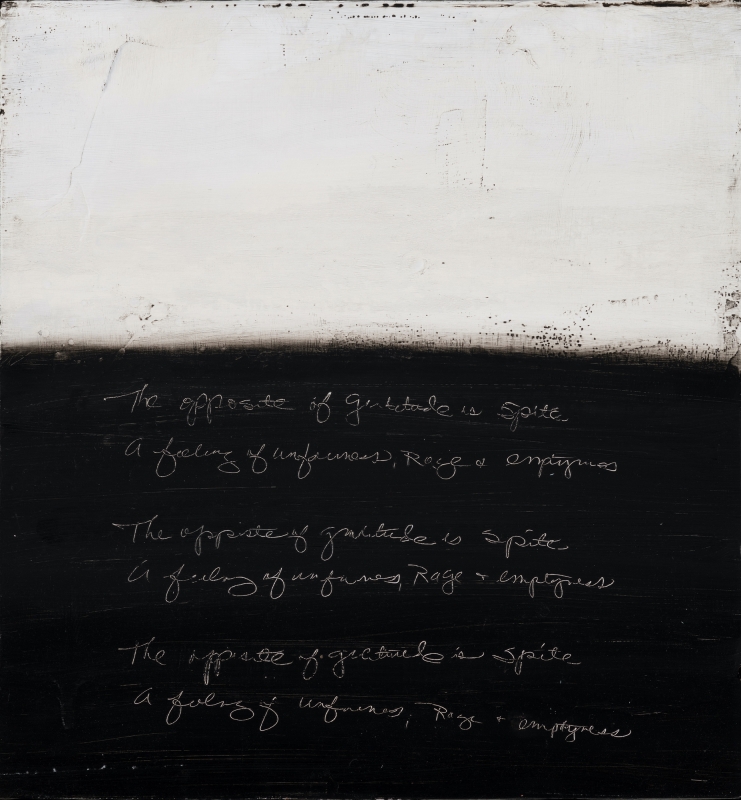 The opposite of gratitude is Spite
A feeling of unfairness, Rage & emptyness
The oppiste of gratitude is Spite
A feeling of unfairness, Rage + emptyness
The opposite of gratitude is Spite
A feeling of unfairness, Rage + emptyness